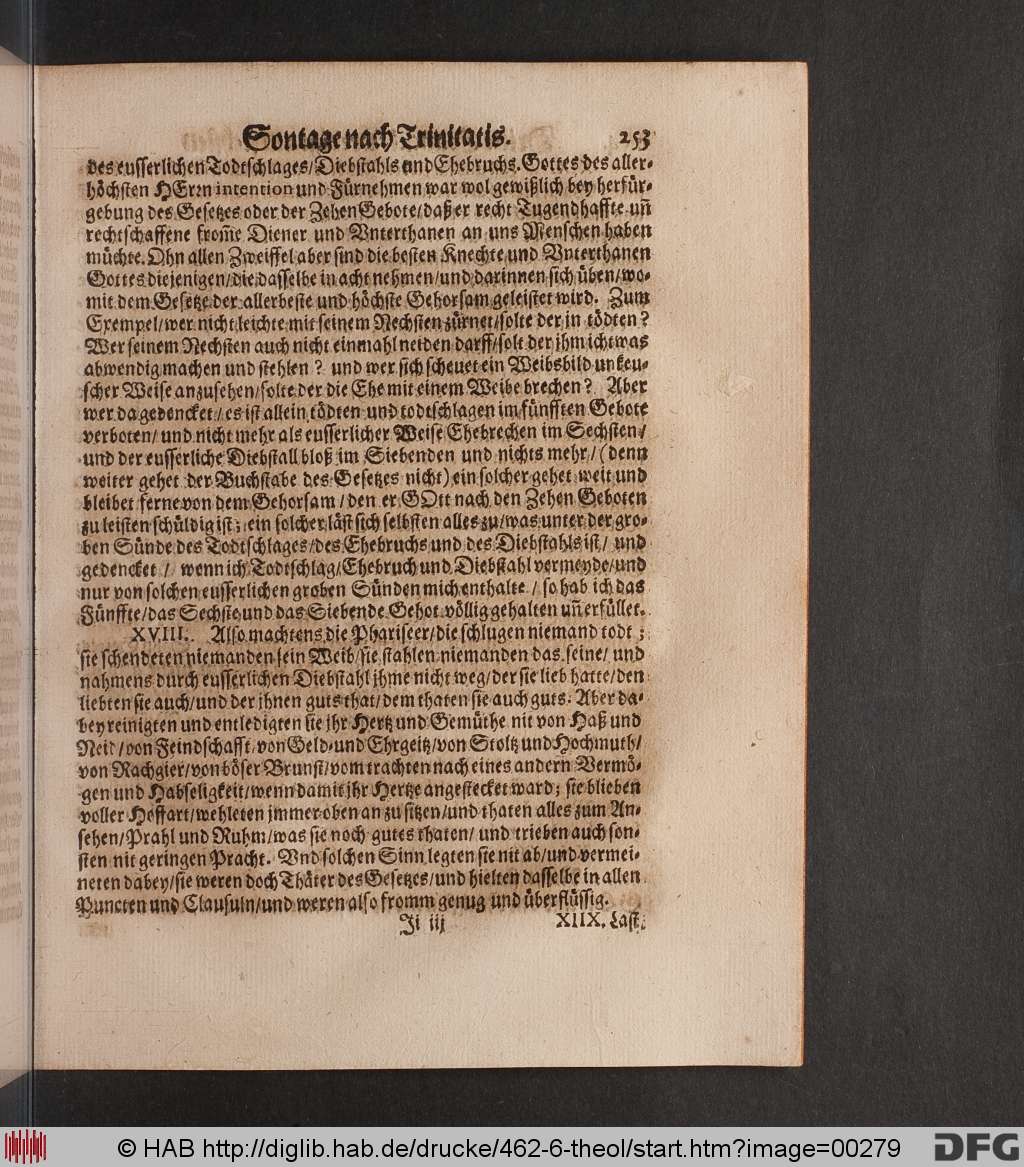 Sontage nach Trinitatis. 253
des eusserlichen Todtschlages/Diebstahls und Ehebruchs. Gottes des aller-
höchsten HErꝛn intention und Fürnehmen war wol gewißlich bey herfür-
gebung des Gesetzes oder der Zehen Gebote/daß er recht Tugendhaffte uñ
rechtschaffene from̃e Diener und Vnterthanen an uns Menschen haben
müchte. Ohn allen Zweiffel aber sind die besten Knechte und Vnterthanen
Gottes diejenigen/die dasselbe in acht nehmen/und darinnen sich üben/wo-
mit dem Gesetze der allerbeste und höchste Gehorsam geleistet wird. Zum
Exempel/wer nicht leichte mit seinem Nechsten zürnet/solte der jn tödten?
Wer seinem Nechsten auch nicht einmahl neiden darff/solt der jhm ichtwas
abwendig machen und stehlen? und wer sich scheuet ein Weibsbild unkeu-
scher Weise anzusehen/solte der die Ehe mit einem Weibe brechen? Aber
wer da gedencket/es ist allein tödten und todtschlagen im fünfften Gebote
verboten/und nicht mehr als eusserlicher Weise Ehebrechen im Sechsten/
und der eusserliche Diebstall bloß im Siebenden und nichts mehr/(denn
weiter gehet der Buchstabe des Gesetzes nicht) ein solcher gehet weit und
bleibet ferne von dem Gehorsam/den er GOtt nach den Zehen Geboten
zu leisten schüldig ist; ein solcher läst sich selbsten alles zu/was unter der gro-
ben Sünde des Todtschlages/des Ehebruchs und des Diebstahls ist/und
gedencket/wenn ich Todtschlag/Ehebruch und Diebstahl vermeyde/und
nur von solchen eusserlichen groben Sünden mich enthalte/so hab ich das
Fünffte/das Sechste und das Siebende Gebot völlig gehalten uñ erfüllet.
XVIII. Also machtens die Phariseer/die schlugen niemand todt;
sie schendeten niemanden sein Weib/sie stahlen niemanden das seine/und
nahmens durch eusserlichen Diebstahl jhme nicht weg/der sie lieb hatte/den
liebten sie auch/und der jhnen guts that/dem thaten sie auch guts. Aber da-
bey reinigten und entledigten sie jhr Hertz und Gemüthe nit von Haß und
Neid/von Feindschafft/von Geld-und Ehrgeitz/von Stoltz und Hochmuth/
von Rachgier/von böser Brunst/vom trachten nach eines andern Vermö-
gen und Habseligkeit/wenn damit jhr Hertze angestecket ward; sie blieben
voller Hoffart/wehleten jmmer oben an zu sitzen/und thaten alles zum An-
sehen/Prahl und Ruhm/was sie noch gutes thaten/und trieben auch son-
sten nit geringen Pracht. Vnd solchen Sinn legten sie nit ab/und vermei-
neten dabey/sie weren doch Thäter des Gesetzes/und hielten dasselbe in allen
Puncten und Clausuln/und weren also fromm genug und überflüssig.
Ji iij XIIX. Last.
© HAB http://diglib.hab.de/drucke/462-6-theol/start.htm?image=00279
DFG